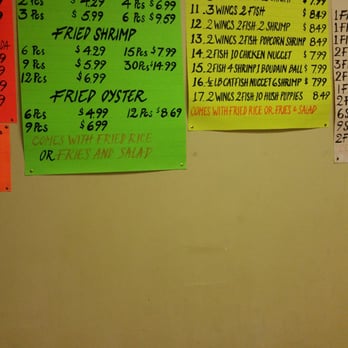 2 Pcs $4.29 4 Pcs $6.99
3 Pcs $5.99 6 Pcs $9.59
FRIED SHRIMP
6 Pcs $4.29 15 Pcs $7.99
9 Pcs $5.99 30 Pcs $14.99
12 Pcs $6.99
FRIED OYSTER
6 Pcs $4.99 12 Pcs $8.69
9 Pcs $6.99
COMES WITH FRIED RICE
OR FRIES AND SALAD
11. 3 WINGS 2 FISH $8.49
12. 2 WINGS 2 FISH 2 SHRIMP $8.49
13. 2 WINGS 2 FISH POPCORN SHRIMP 8.49
14. 2 FISH 10 CHICKEN NUGGET $7.99
15. 2 FISH 4 SHRIMP 1 BOUDAIN BALL $7.99
16. ½ LB CATFISH NUGGET 6 SHRIMP $7.99
17. 2 WINGS 2 FISH 10 HUSH PUPPIES 8.49
COMES WITH FRIED RICE OR FRIES & SALAD